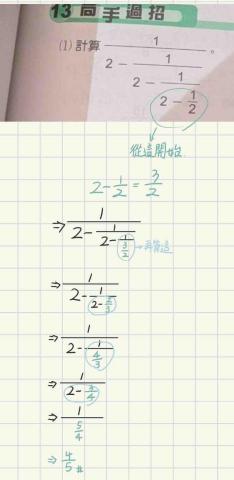 13 同手過招
(1) 計算 1/(2 - 1/(2 - 1/(2 - 1/2)))。
從這開始
2 - 1/2 = 3/2
⇒ 1/(2 - 1/(2 - 1/(3/2))) →再算這
⇒ 1/(2 - 1/(2 - 2/3))
⇒ 1/(2 - 1/(4/3))
⇒ 1/(2 - 3/4)
⇒ 1/(5/4)
⇒ 4/5 #